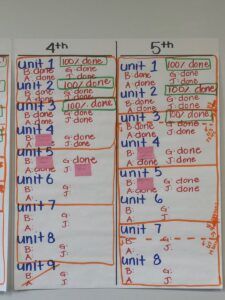 4th
unit 1 100% done
B: done G: done
A: done J: done
unit 2 100% done
B: done G: done
A: done J: done
unit 3 100% done
B: done G: done
A: done J: done
unit 4
B: G: done
A: J: done
unit 5
B: G: done
A: J:
unit 6
B: G:
A: J:
unit 7
B: G:
A: J:
unit 8
B: G:
A: J:
unit 9
B: G:
A: J:
5th
unit 1 100% done
B: done G: done
A: done J: done
unit 2 100% done
B: done G: done
A: done J: done
unit 3 100% done
B: done G: done
A: done J: done
unit 4
B: G: done
A: done J: done
unit 5
B: G: done
A: J: done
unit 6
B: G:
A: J:
unit 7
B: G:
A: J:
unit 8
B: G:
A: J: